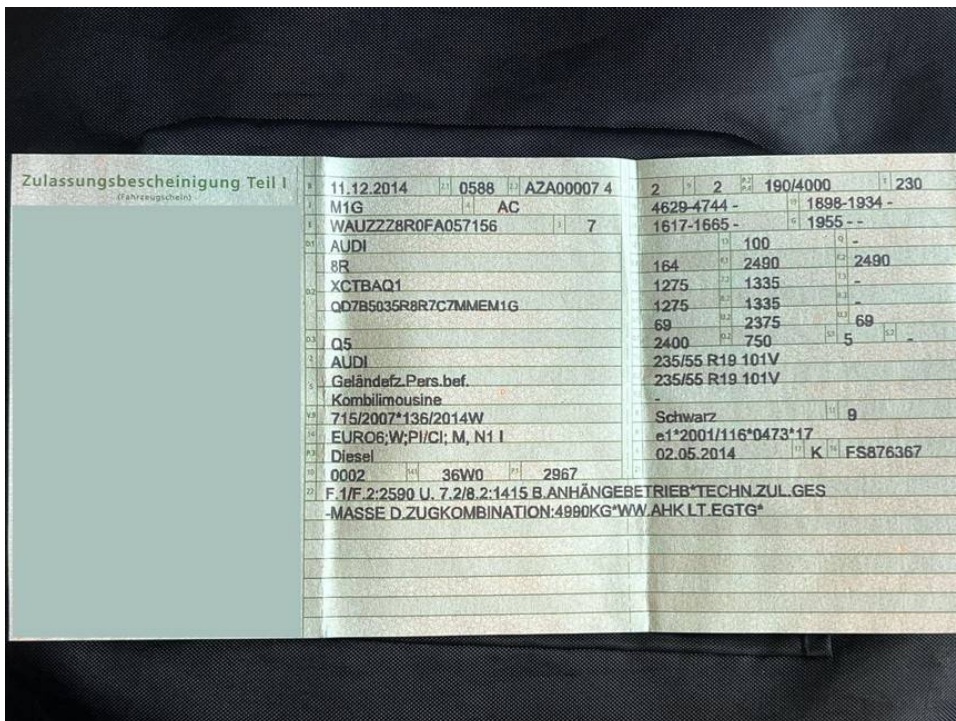 Zulassungsbescheinigung Teil I
(Fahrzeugschein)
B 11.12.2014 2.1 0588 2.2 AZA00007 4
J M1G 4 AC
E WAUZZZ8R0FA057156 3 7
D.1 AUDI
8R
D.2 XCTBAQ1
QD7B5035R8R7C7MMEM1G
D.3 Q5
2 AUDI
5 Geländefz.Pers.bef.
Kombilimousine
V.9 715/2007*136/2014W
14 EURO6;W;PI/CI; M, N1 I
P.3 Diesel
10 0002 14.1 36W0 P.1 2967
22 F.1/F.2:2590 U. 7.2/8.2:1415 B.ANHÄNGEBETRIEB*TECHN.ZUL.GES
-MASSE D.ZUGKOMBINATION:4990KG*WW.AHK LT.EGTG*
2 9 2 P.2 P.4 190/4000 T 230
4629-4744 - 19 1898-1934 -
1617-1665 - G 1955 - -
13 100 Q -
164 F.1 2490 F.2 2490
1275 7.2 1335 7.3 -
1275 8.2 1335 8.3 -
69 U.2 2375 U.3 69
2400 O.2 750 S.1 5 S.2 -
235/55 R19 101V
235/55 R19 101V
-
Schwarz 11 9
e1*2001/116*0473*17
02.05.2014 17 K 16 FS876367